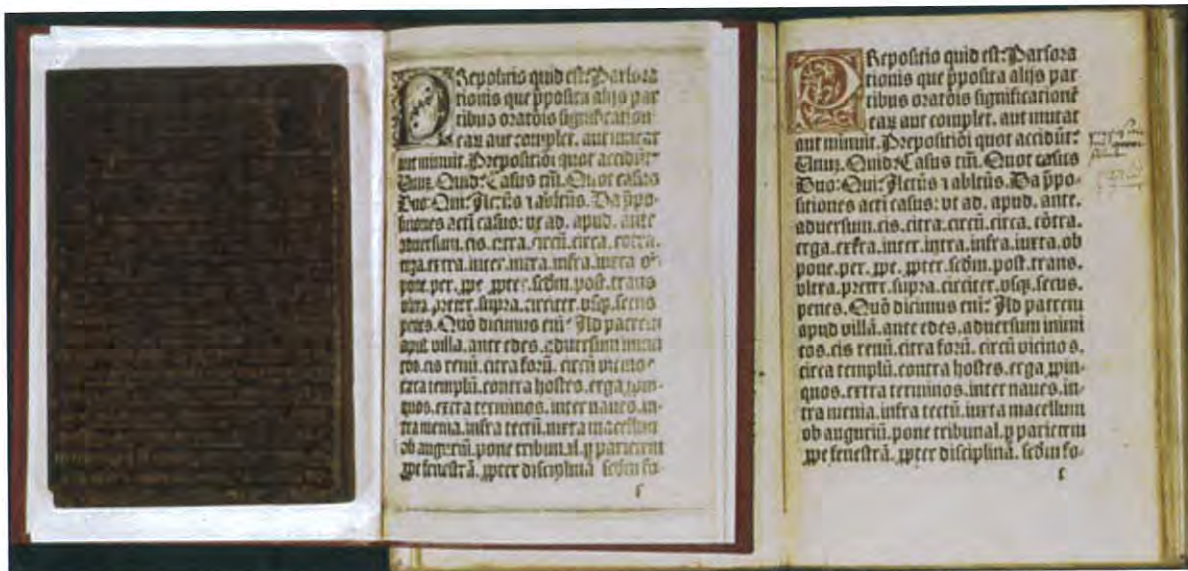 PRepositio quid est: Pars ora
tionis que p̄posita alijs par
tibus oratōis signification
eaꝝ aut complet. aut mutat
aut minuit. Prepositiōi quot accidūt:
Unuꝫ. Quid: Casus tm̄. Quot casus
Duo: Qui: Actūs ⁊ abltūs. Da p̄po-
sitiones acti casus: vt ad. apud. ante
aduersum. cis. citra. circū. circa. cōtra.
erga. extra. inter. intra. infra. iuxta. ob
pone. per. ꝓpe. ꝓpter. scd̄m. post. trans
vltra. preter. supra. circiter. vsqꝫ. secus
penes. Quō dicimus eni: Ad patrem
apud villā. ante edes. aduersum inimi
cos. cis renū. citra forū. circū vicinos.
circa templū. contra hostes. erga ꝓpin-
quos. extra terminos. inter naues. in-
tra menia. infra tectū. iuxta macellum
ob auguriū. pone tribunal. ꝑ parietem
ꝓpe fenestrā. ꝓpter disciplinā. scd̄m fo-
PRepositio quid est: Pars ora
tionis que p̄posita alijs par
tibus oratōis significationē
eaꝝ aut complet. aut mutat
aut minuit. Prepositiōi quot accidūt:
Unuꝫ. Quid: Casus tm̄. Quot casus
Duo: Qui: Actūs ⁊ abltūs. Da p̄po-
sitiones acti casus: vt ad. apud. ante.
aduersum. cis. citra. circū. circa. cōtra.
erga. extra. inter. intra. infra. iuxta. ob
pone. per. ꝓpe. ꝓpter. scd̄m. post. trans.
vltra. preter. supra. circiter. vsqꝫ. secus.
penes. Quō dicimus eni: Ad patrem
apud villā. ante edes. aduersum inimi
cos. cis renū. citra forū. circū vicinos.
circa templū. contra hostes. erga ꝓpin-
quos. extra terminos. inter naues. in-
tra menia. infra tectū. iuxta macellum
ob auguriū. pone tribunal. ꝑ parietem
ꝓpe fenestrā. ꝓpter disciplinā. scd̄m fo-